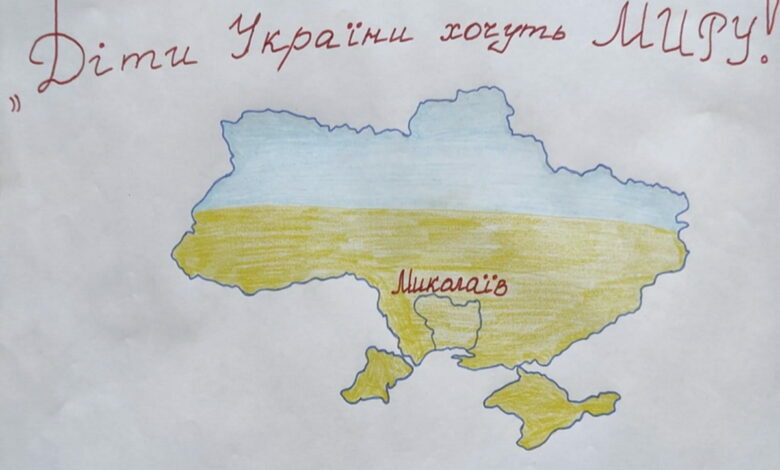 „Діти України хочуть МИРУ!
Миколаїв